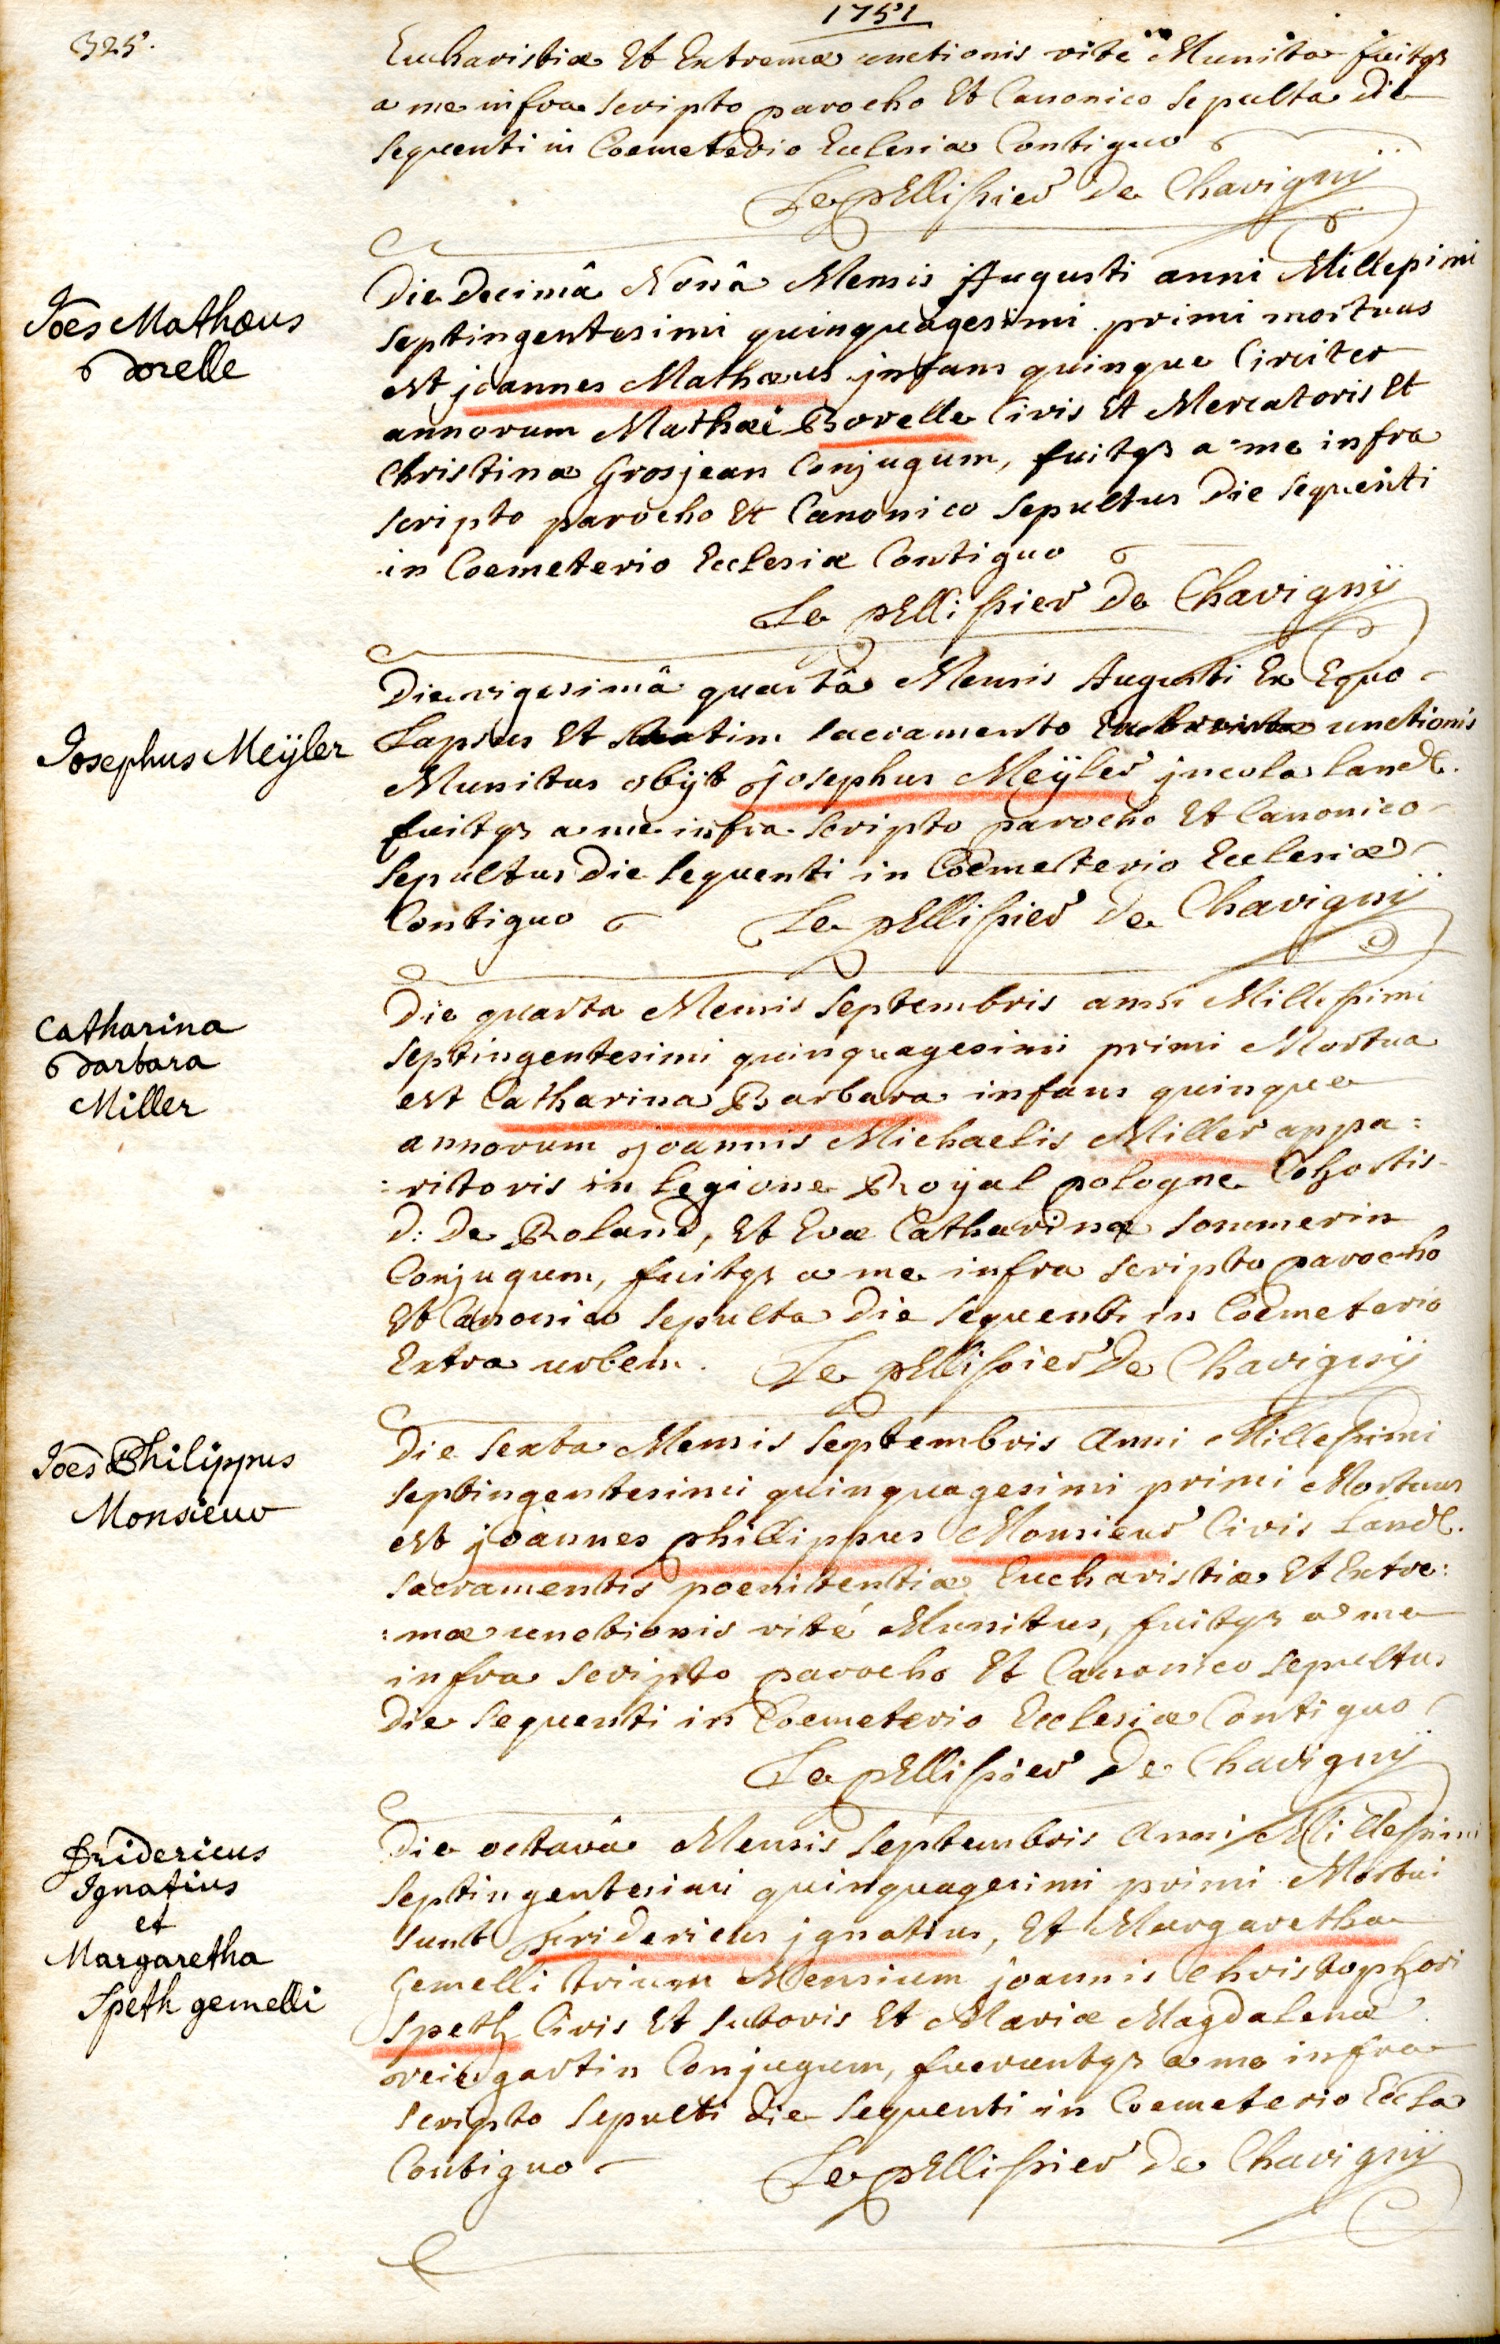 1751
325.
Eucharistiæ Et Extremæ unctionis rité Munita fuitqꝫ
a me infra scripto parocho Et Canonico Sepulta Die
sequenti in Coemeterio Eclesiæ Contiguo
Le pElliſsier De Chavignÿ
Joes Mathæus
Borelle
Die Decimâ Nonâ Mensis Augusti anni Milleſsimi
septingentesimi quinquagesimi primi mortuus
est joannes Mathæus jnfans quinque Circiter
annorum Mathæi Borelle Civis Et Mercatoris Et
Christinæ Grosjean Conjugum, fuitqꝫ a me infra
scripto parocho Et Canonico Sepultus Die sequenti
in Coemeterio Ecclesiæ Contiguo
Le pElliſsier De Chavignÿ
Josephus Meÿler
Die vigesimâ quartâ Mensis Augusti Ex Equo
Lapsus Et statim sacramento unctionis
Munitus obijt josephus Meÿler jncola Land.
fuitqꝫ a me infra scripto parocho Et Canonico
Sepultus Die sequenti in Coemeterio Ecclesiæ
Contiguo Le pElliſsier De Chavignÿ
Catharina
Barbara
Miller
Die quarta Mensis Septembris anni Milleſsimi
septingentesimi quinquagesimi primi Mortua
est Catharina Barbara infans quinque
annorum joannis Michaelis Miller appa:
:ritoris in Legione Royal pologne Cohortis
D: De Roland, Et Evæ Catharinæ Sommerin
Conjugum, fuitqꝫ a me infra scripto parocho
Et Canonico Sepulta Die sequenti in Coemeterio
Extra urbem. Le pElliſsier De Chavignÿ
Joes Philippus
Monsieur
Die sexta Mensis Septembris Anni Milleſsimi
septingentesimi quinquagesimi primi Mortuus
est joannes phillippus Monsieur Civis Land.
sacramentis poenitentiæ Eucharistiæ Et Extre:
:mæ unctionis rité Munitus, fuitqꝫ a me
infra scripto parocho Et Canonico Sepultus
Die sequenti in Coemeterio Ecclesiæ Contiguo
Le pElliſsier De Chavignÿ
Fridericus
Ignatius
et
Margaretha
Speth gemelli
Die octavâ Mensis Septembris Anni Milleſsimi
septingentesimi quinquagesimi primi Mortui
sunt Fridericus jgnatius, Et Margaretha
Gemelli trium Mensium joannis Christophori
Speth Civis Et sutoris Et Mariæ Magdalenæ
Conjugum, fueruntqꝫ a me infra
scripto Sepulti Die sequenti in Coemeterio Eccla
Contiguo Le pElliſsier De Chavignÿ